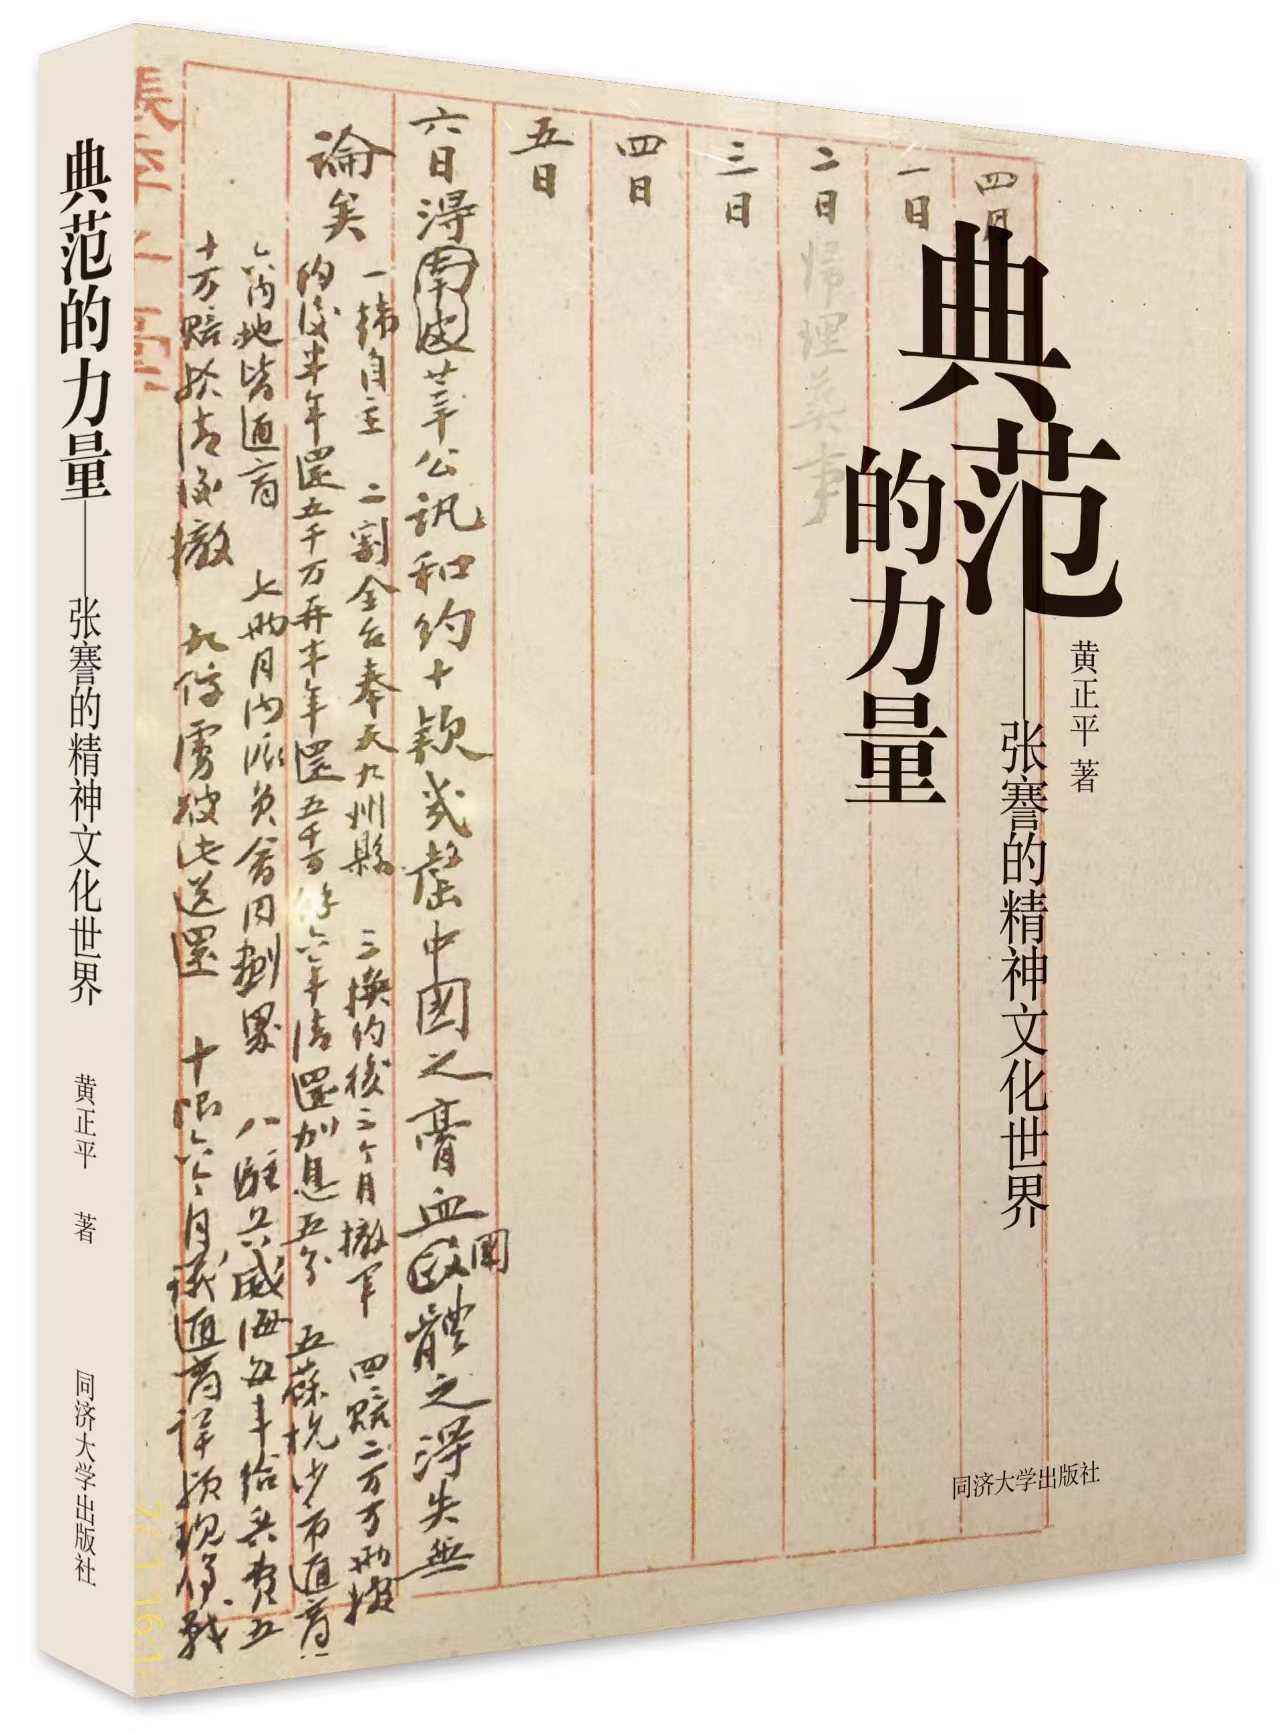 典范的力量——张謇的精神文化世界
黄正平 著
同济大学出版社
典范
的力量
——张謇的精神文化世界
黄正平 著
同济大学出版社
四月
一日
二日 归理葬事
三日
四日
五日
六日得南皮莘公讯和约十款几罄中國之膏血國體之得失無
論矣
一韩自主 二割全台奉天九州縣 三换约後三个月撤军 四赔二万万两
约後半年還五千万再半年還五千万 六年清還加息五分 五蘇杭沙市通商
内地皆通商 七两月内派员會同劃界 八駐兵威海每年给兵費五
十万赔款清後撤 九俘虏彼此送還 十限六个月議通商详款现停戰